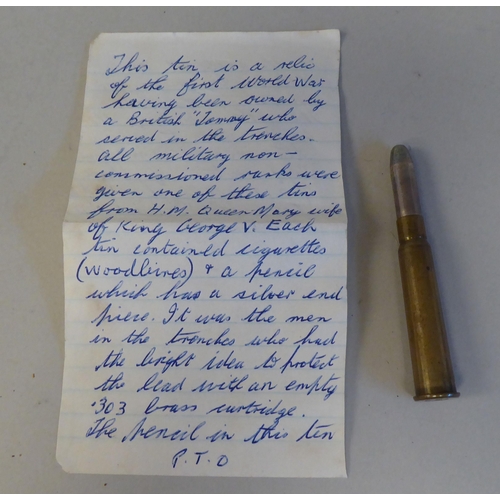 This tin is a relic
of the first World War
having been owned by
a British "Tommy" who
served in the trenches.
All military non-
commissioned ranks were
given one of these tins
from H.M. Queen Mary wife
of King George V. Each
tin contained cigarettes
(Woodbines) & a pencil
which has a silver end
piece. It was the men
in the trenches who had
the bright idea to protect
the lead with an empty
.303 brass cartridge.
The pencil in this tin
P.T.O